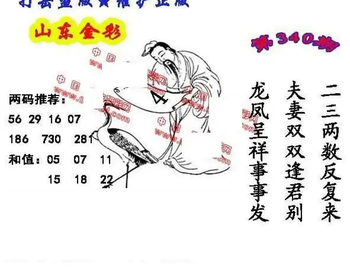 打击盗版 维护正版
山东金彩
第340期
两码推荐:
56 29 16 07
186 730 281
和值: 05 07 11
15 18 22
4
二三两数反复来
夫妻双双逢君别
龙凤呈祥事事发